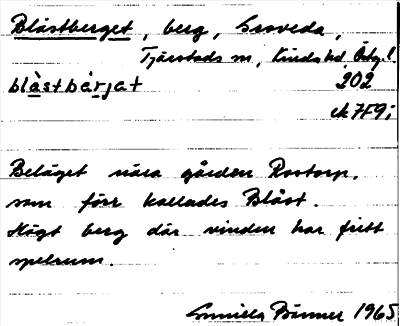 Blåstberget, berg, Svoveda,
Tjärstads sn, Kinda hd, Östg.l
blåstbärjat 202
ek 7F9;
Beläget nära gården Rostorp,
som förr kallades Blåst.
Högt berg där vinden har fritt
spelrum.
Gunilla Börner 1965